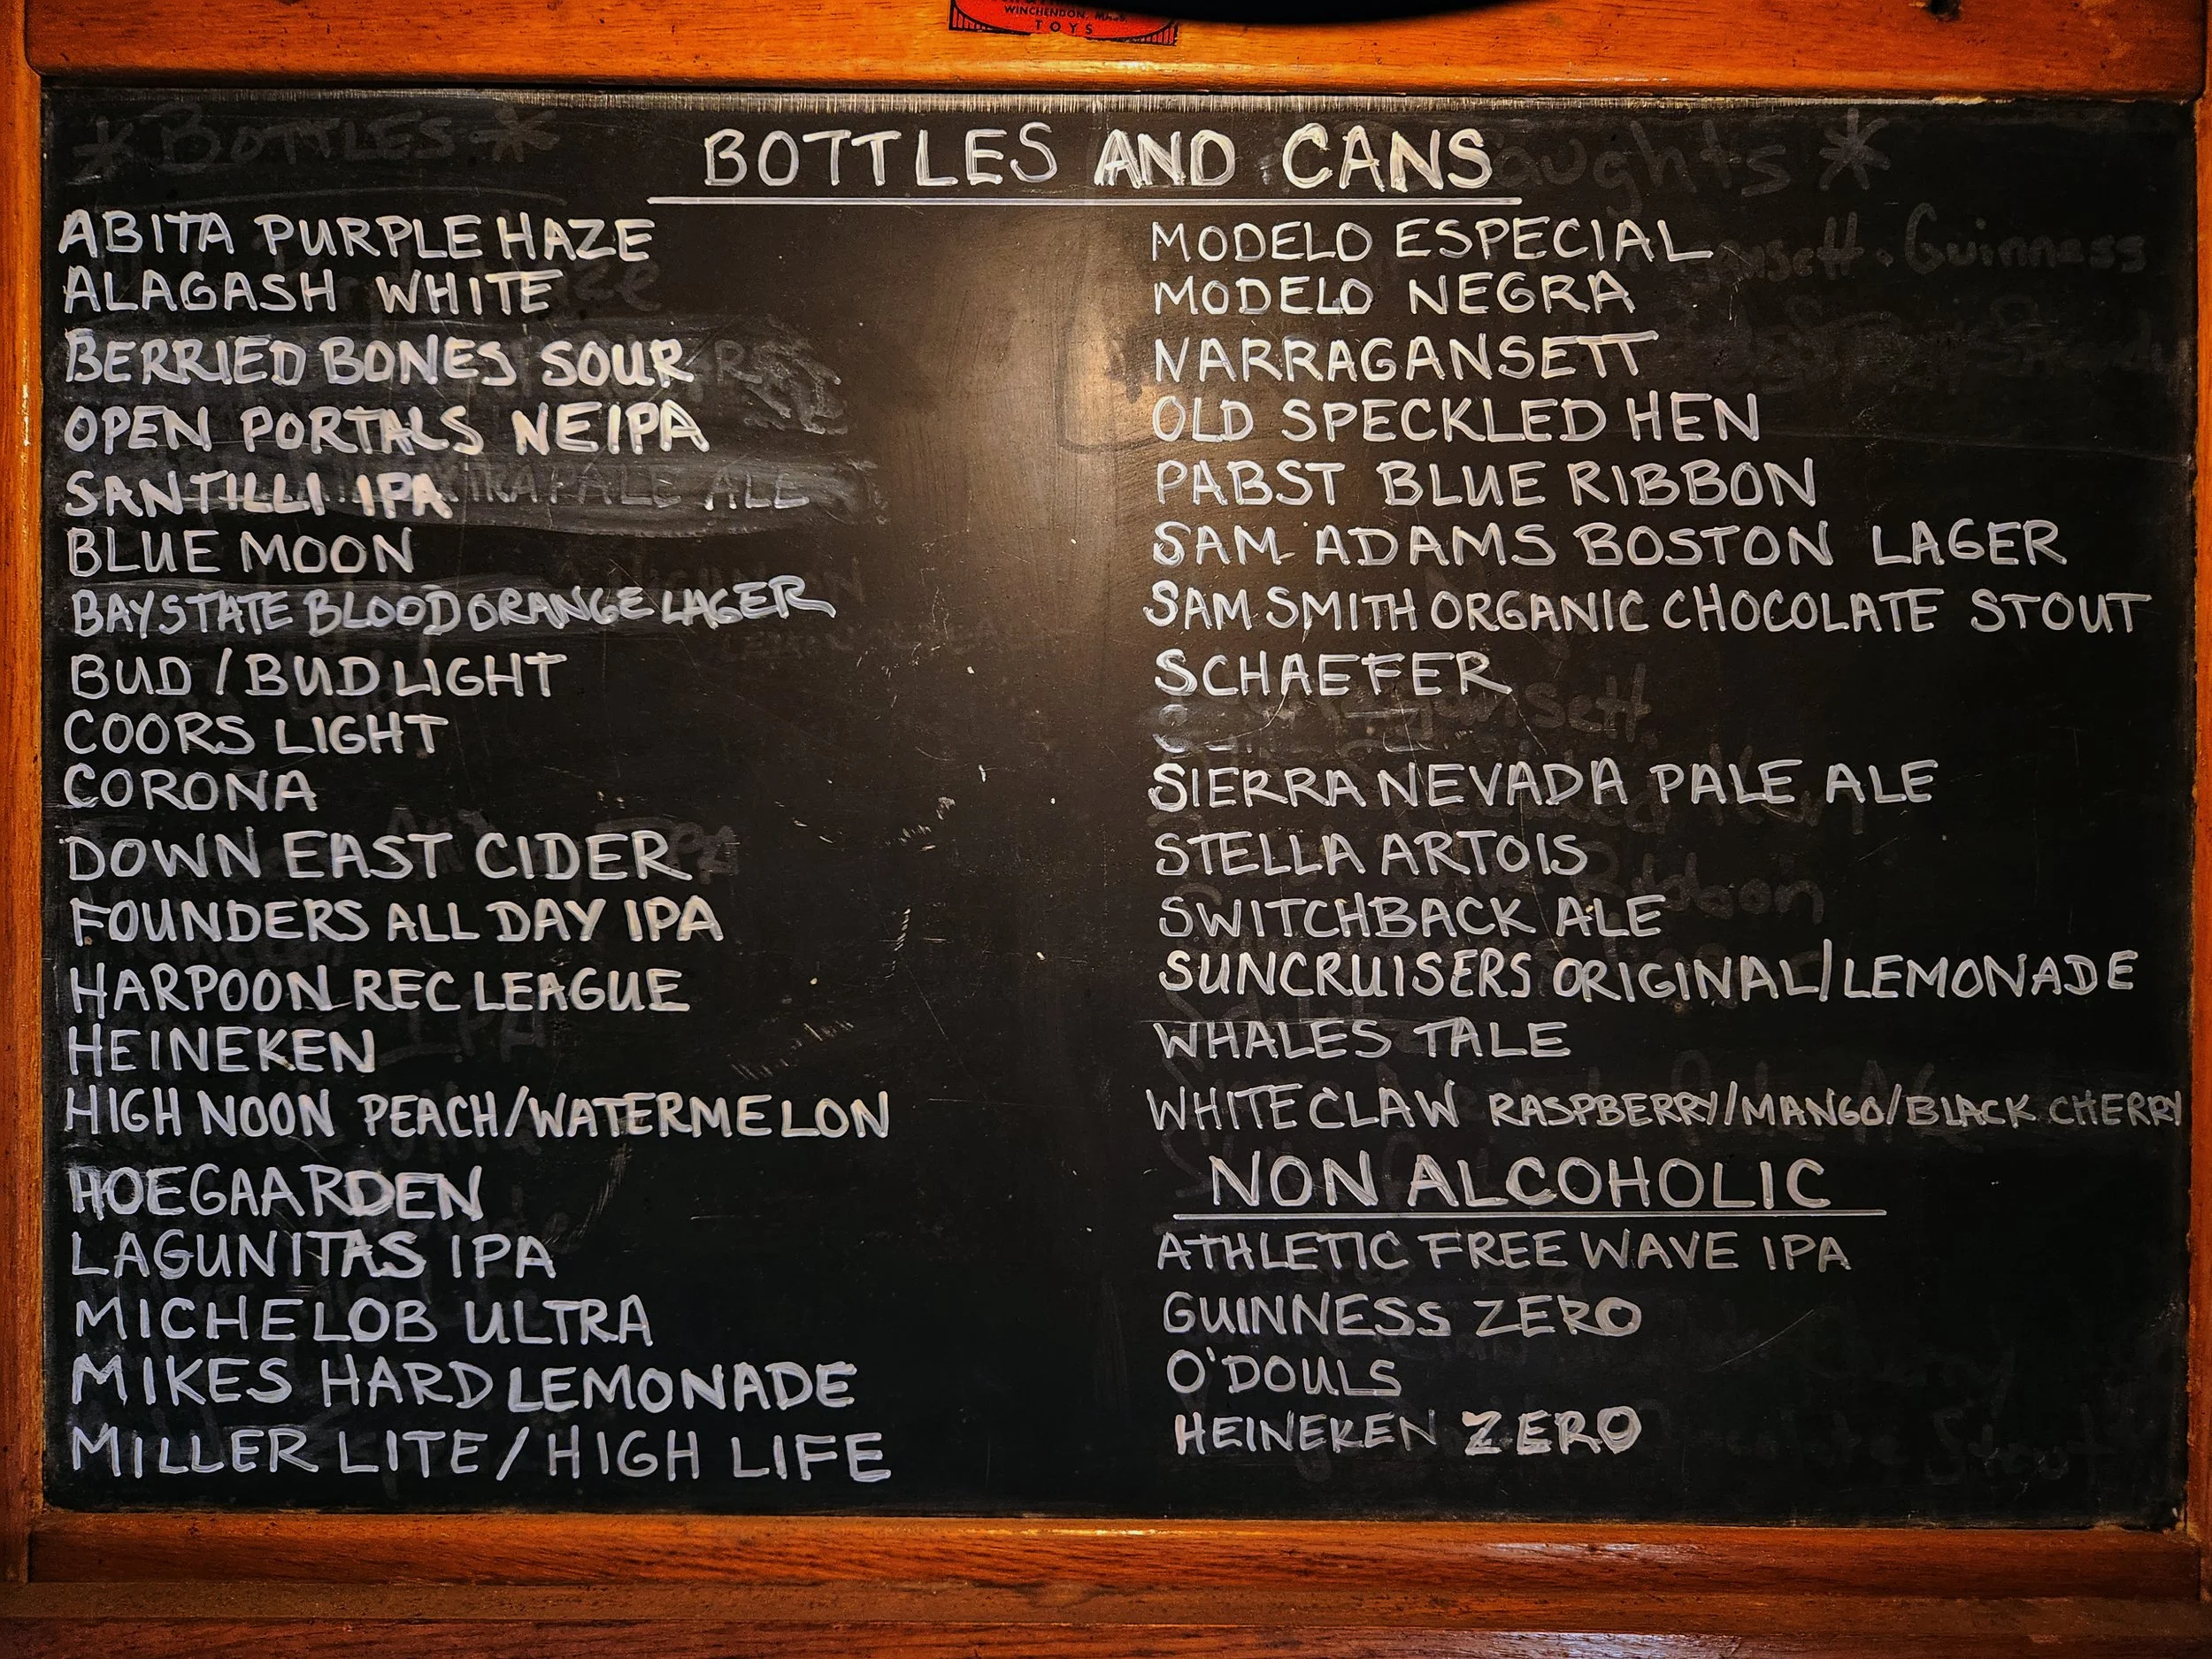 WINCHENDON, MASS.
TOYS
BOTTLES AND CANS
ABITA PURPLE HAZE
ALAGASH WHITE
BERRIED BONES SOUR
OPEN PORTALS NEIPA
SANTILLI IPA
BLUE MOON
BAYSTATE BLOOD ORANGE LAGER
BUD / BUD LIGHT
COORS LIGHT
CORONA
DOWN EAST CIDER
FOUNDERS ALL DAY IPA
HARPOON REC LEAGUE
HEINEKEN
HIGH NOON PEACH/WATERMELON
HOEGAARDEN
LAGUNITAS IPA
MICHELOB ULTRA
MIKES HARD LEMONADE
MILLER LITE / HIGH LIFE
MODELO ESPECIAL
MODELO NEGRA
NARRAGANSETT
OLD SPECKLED HEN
PABST BLUE RIBBON
SAM ADAMS BOSTON LAGER
SAM SMITH ORGANIC CHOCOLATE STOUT
SCHAEFER
SIERRA NEVADA PALE ALE
STELLA ARTOIS
SWITCHBACK ALE
SUNCRUISERS ORIGINAL/LEMONADE
WHALES TALE
WHITE CLAW RASPBERRY/MANGO/BLACK CHERRY
NON ALCOHOLIC
ATHLETIC FREE WAVE IPA
GUINNESS ZERO
O'DOULS
HEINEKEN ZERO